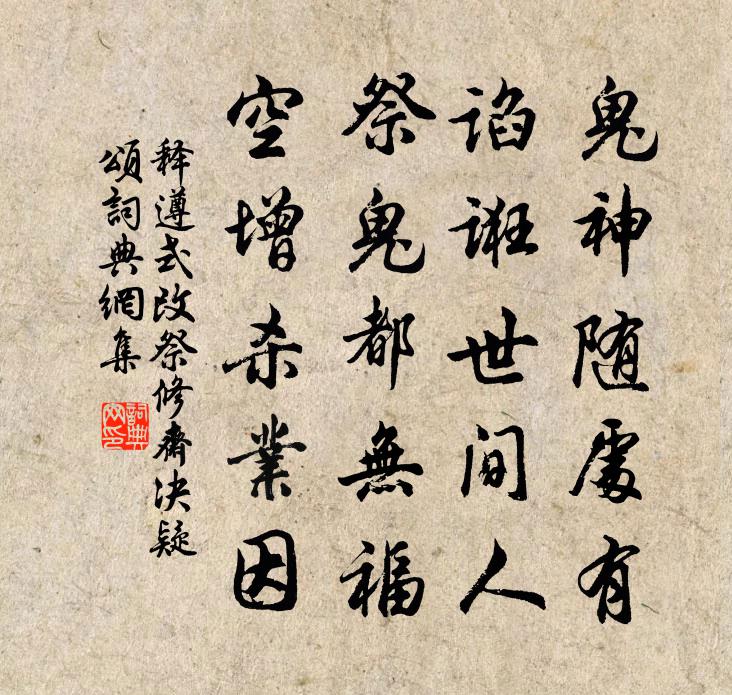 鬼神随處有
谄诳世间人
祭鬼都無福
空增杀業因
释遵式改祭修齋决疑
頌詞典網集
詞典
网印